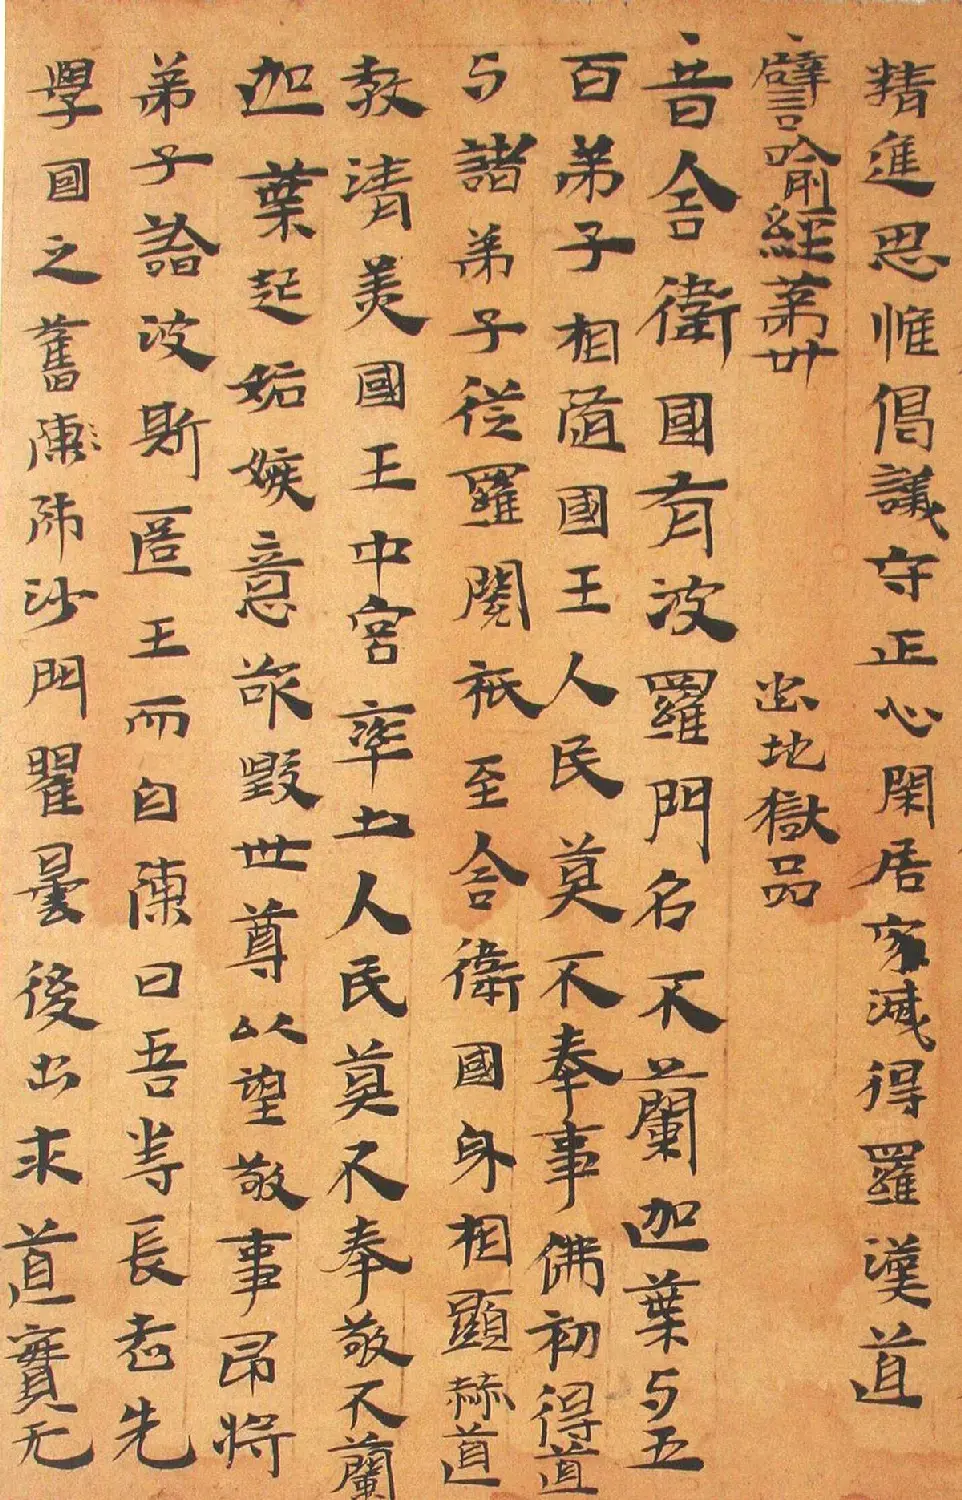 精進思惟倡議守正心閑居寂滅得羅漢道
譬喻經第卅 出地獄品
昔舍衛國有波羅門名不蘭迦葉与五
百弟子相隨國王人民莫不奉事佛初得道
与諸弟子從羅閱祇至舍衛國身相顯赫道
教清美國王中宮率土人民莫不奉敬不蘭
迦葉起妬嫉意欲毀世尊以望敬事即將
弟子詣波斯匿王而自陳曰吾等長老先
學國之舊師沙門瞿曇後出求道實无